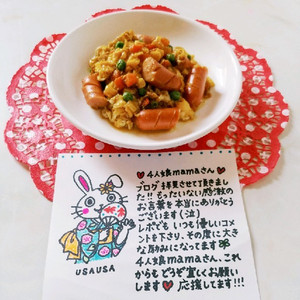 ♥4人娘mamaさん♥
ブログ拝見させて頂きまし
た!!もったいない感激の
お言葉を本当にありがとう
ございます(泣)
レポでもいつも優しいコメ
ントを下さり、その度に大き
な励みになってます
4人娘mamaさん、これ
からもどうぞ宜しくお願い
します♥応援してます!!!
USAUSA